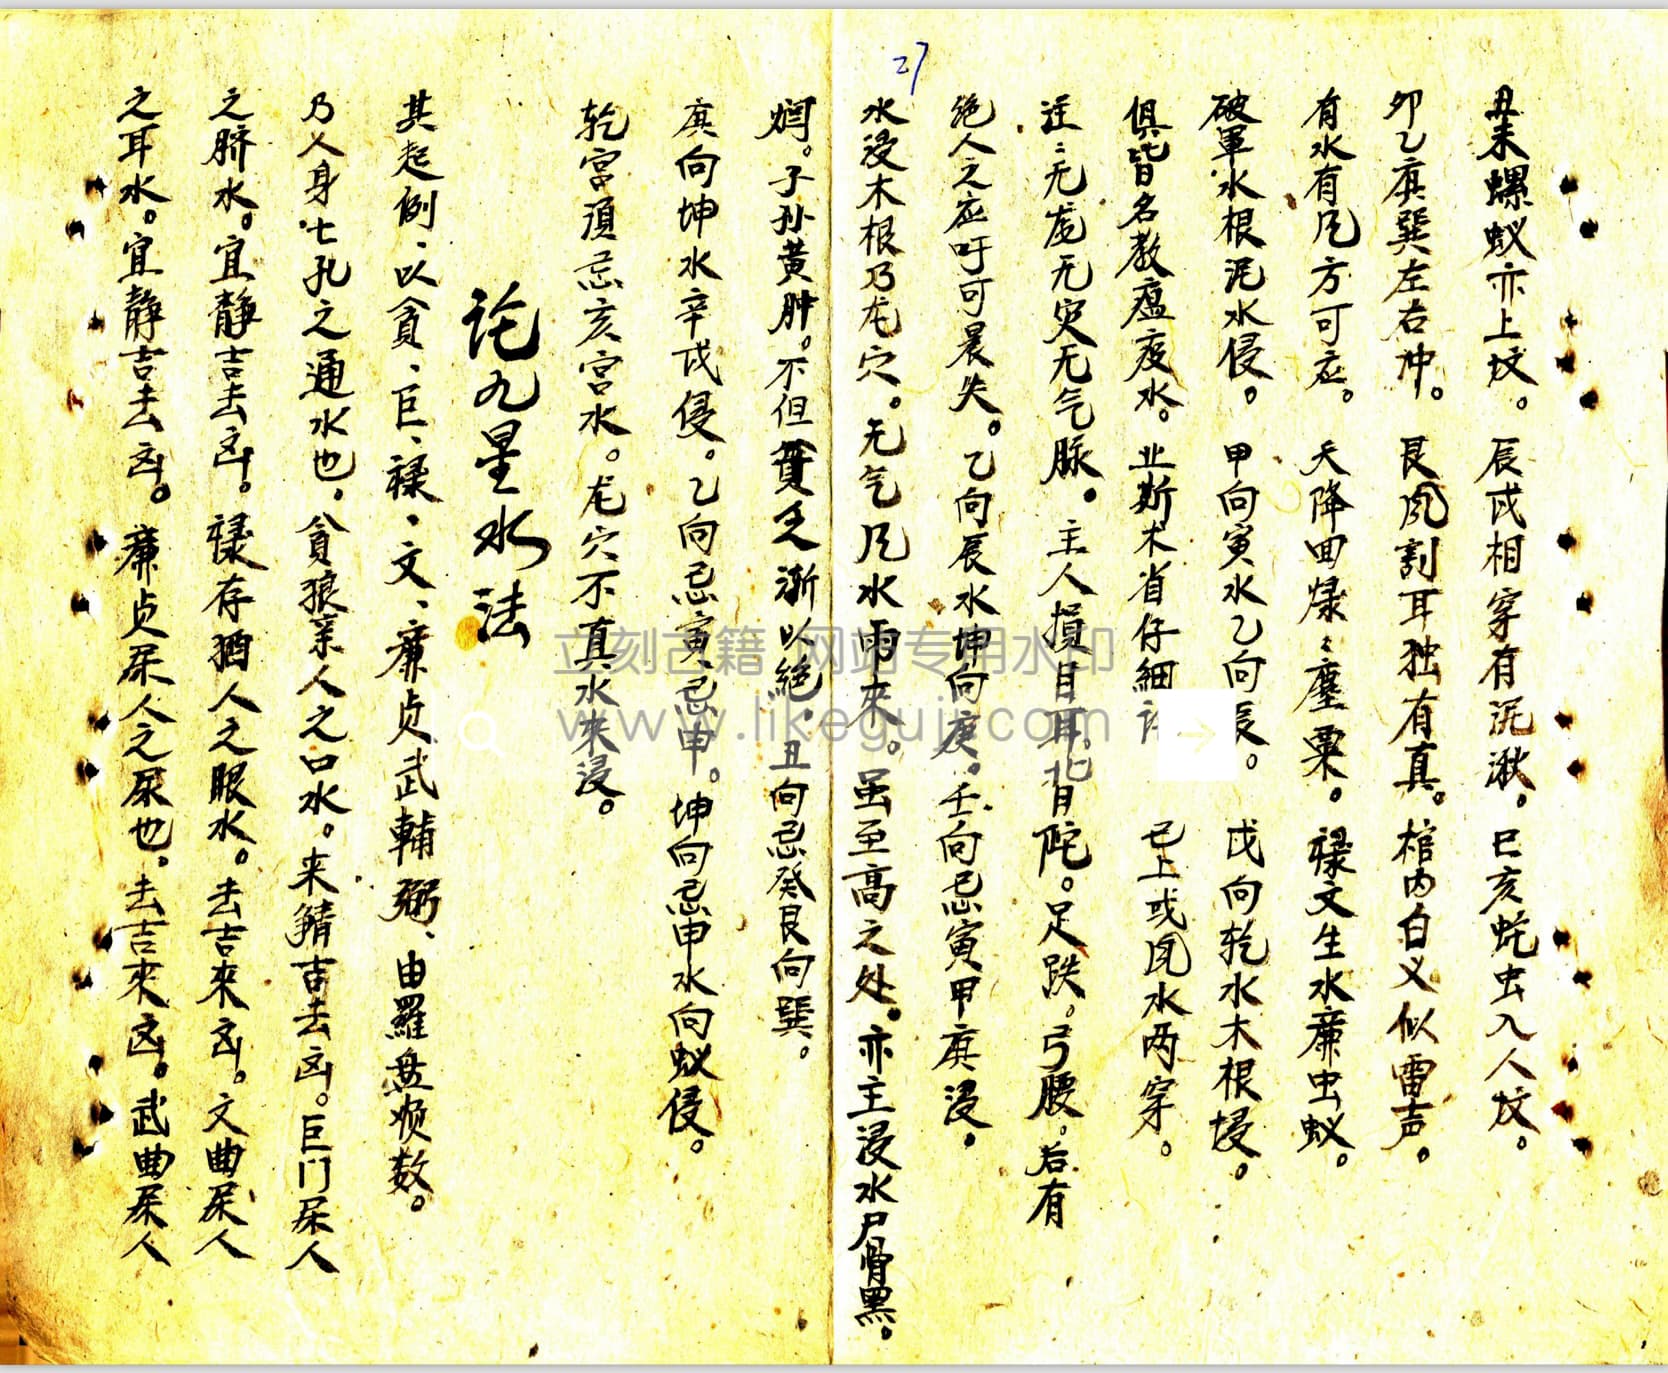 27
丑未螺蚁亦上坟。辰戌相穿有泥湫。巳亥蛇虫入人坟。
卯乙庚巽左右冲。艮风割耳独有真。棺内白义似雷声。
有水有凡方可应。天降回禄塵粟。禄文生水廉虫蚁。
破軍水根泥水侵。甲向寅水乙向辰。戊向乾水木根侵。
俱皆名教瘟疫水。业斯术省仔細 已上或風水两穿。
往往无龙无灾无气脉。主人損目耳背陀。足跌。弓腰。若有
绝人之应吁可晨失。乙向辰水坤向庚。壬向忌寅甲庚浸。
水浸木根乃龙穴。无气凡水雨來。虽至高之处。亦主浸水尸骨黑。
子孙黄肿。不但貧乏渐以絕。丑向忌癸艮向巽。
庚向坤水辛戌侵。乙向忌寅忌申。坤向忌申水向蚁侵。
乾宫須忌亥宫水。龙穴不真水來浸。
论九星水法
其起例、以貪、巨、禄、文、廉贞武輔弼、由羅盘顺数。
乃人身七孔之通水也。貪狼亲人之口水。来鯖吉去凶。巨门屎人
之脐水。宜静吉去凶。禄存猶人之眼水。去吉來凶。文曲屎人
之耳水。宜静吉去凶。廉贞屎人之尿也。去吉來凶。武曲屎人
立刻古籍 网站专用水印
www.likeguji.com